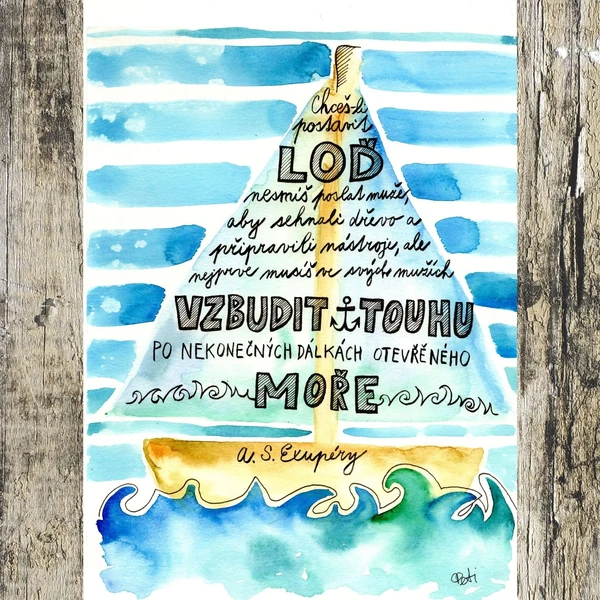 Chceš-li
postavit
LOĎ
nesmíš poslat muže,
aby sehnali dřevo a
připravili nástroje, ale
nejprve musíš ve svých mužích
VZBUDIT TOUHU
PO NEKONEČNÝCH DÁLKÁCH OTEVŘĚNÉHO
MOŘE
A. S. Exupéry